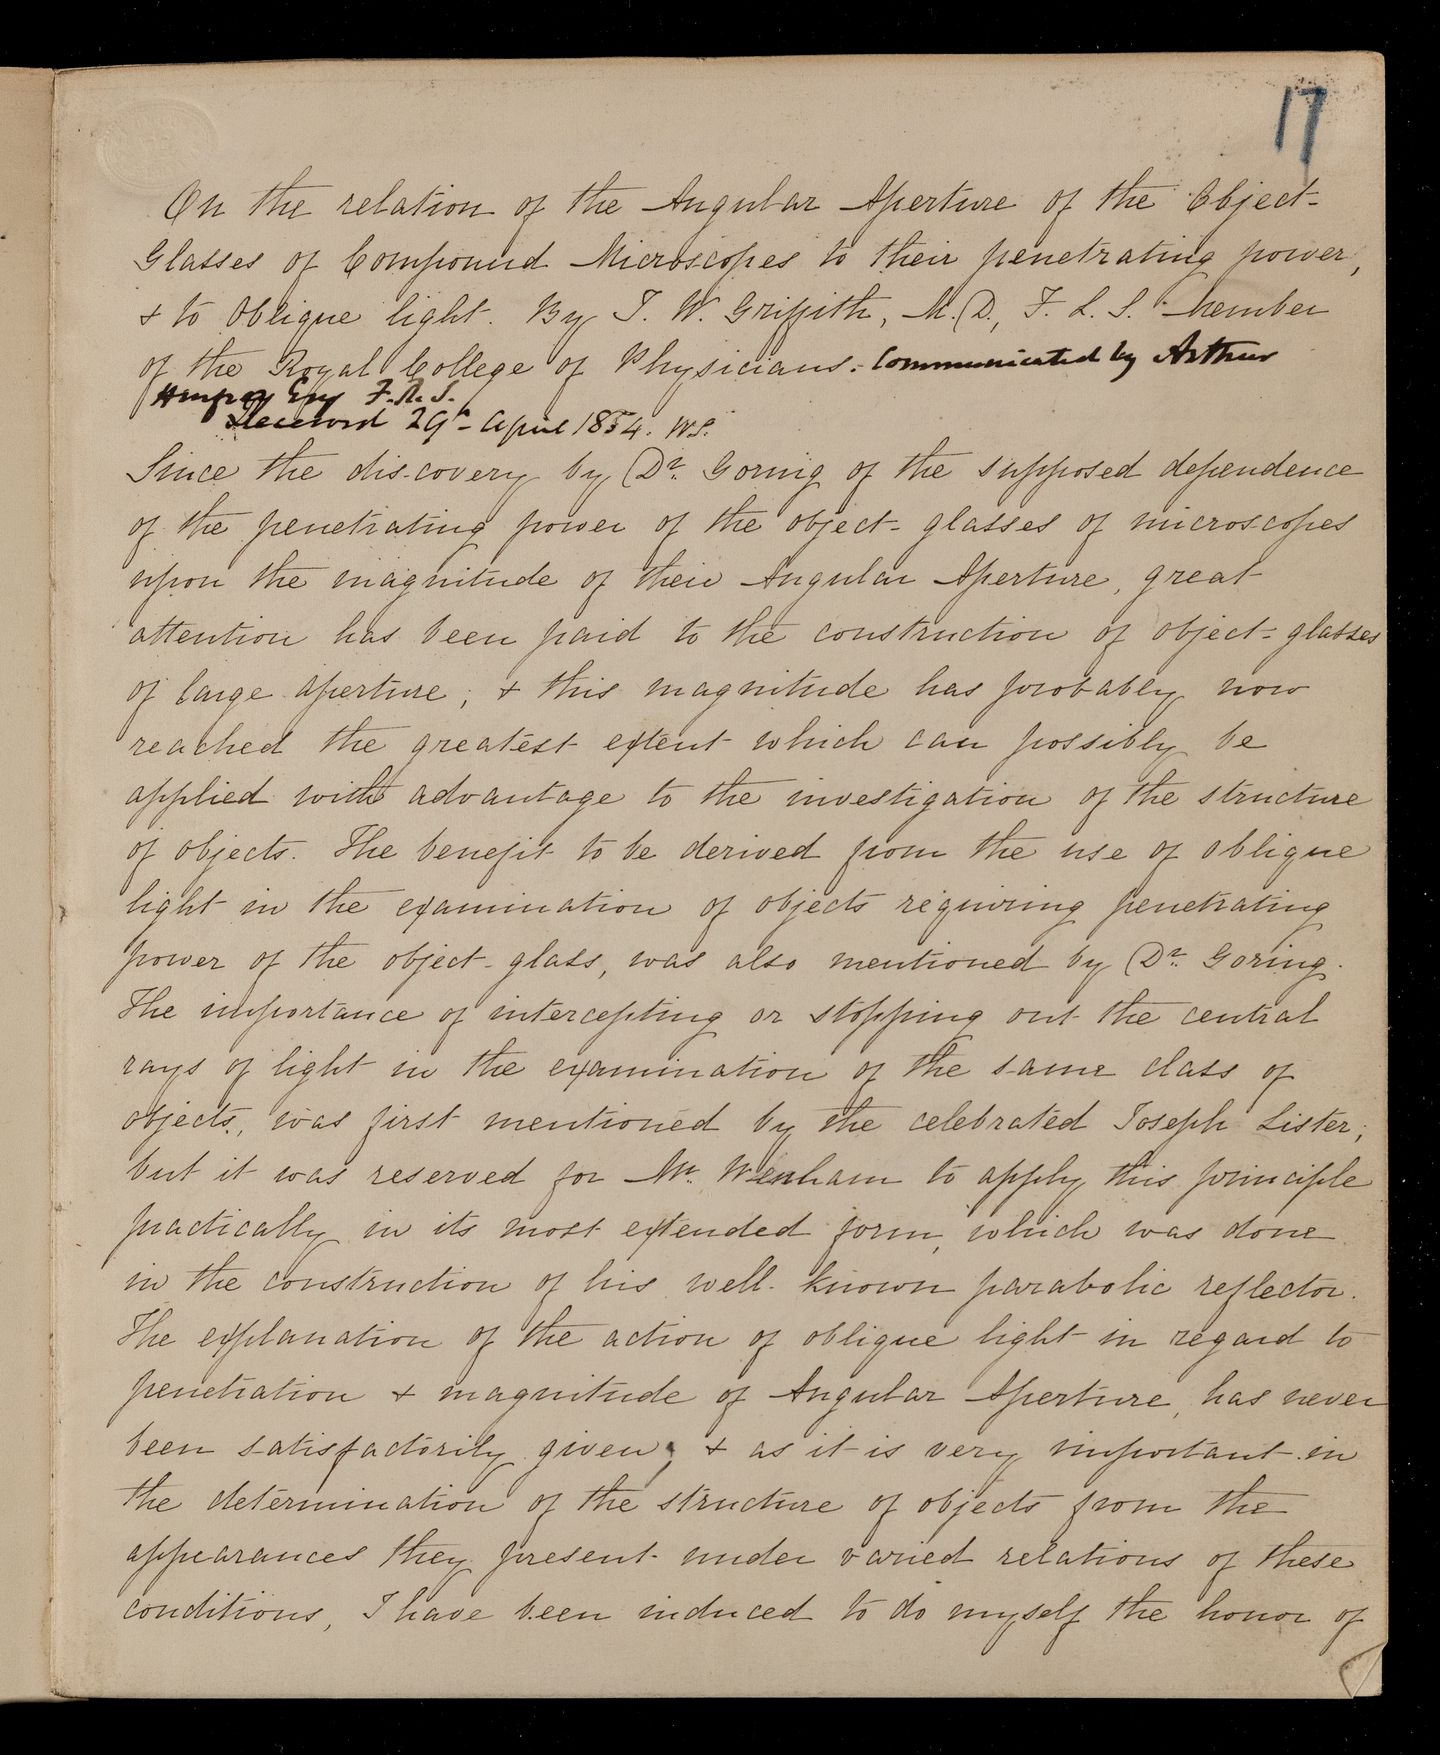 17
On the relation of the Angular Aperture of the Object-
Glasses of Compound Microscopes to their penetrating power,
& to oblique light. By J. W. Griffith, M.D., F. L. S. Member
of the Royal College of Physicians. Communicated by Arthur
Henfrey Esq F.R.S.
Received 29 April 1854. WS.
Since the discovery by Dr. Goring of the supposed dependence
of the penetrating power of the object-glasses of microscopes
upon the magnitude of their Angular Aperture, great
attention has been paid to the construction of object-glasses
of large aperture; & this magnitude has probably now
reached the greatest extent which can possibly be
applied with advantage to the investigation of the structure
of objects. The benefit to be derived from the use of oblique
light in the examination of objects requiring penetrating
power of the object-glass, was also mentioned by Dr. Goring.
The importance of intercepting or stopping out the central
rays of light in the examination of the same class of
objects, was first mentioned by the celebrated Joseph Lister;
but it was reserved for Mr. Wenham to apply this principle
practically in its most extended form, which was done
in the construction of his well-known parabolic reflector.
The explanation of the action of oblique light in regard to
penetration & magnitude of Angular Aperture, has never
been satisfactorily given; & as it is very important in
the determination of the structure of objects from the
appearances they present under varied relations of these
conditions, I have been induced to do myself the honor of